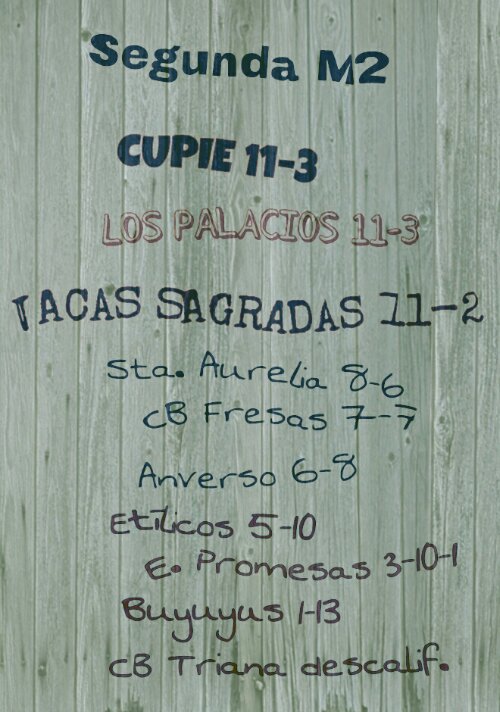 Segunda M2
CUPIE 11-3
LOS PALACIOS 11-3
VACAS SAGRADAS 11-2
Sta. Aurelia 8-6
CB Fresas 7-7
Anverso 6-8
Etílicos 5-10
E. Promesas 3-10-1
Buyuyus 1-13
CB Triana descalif.